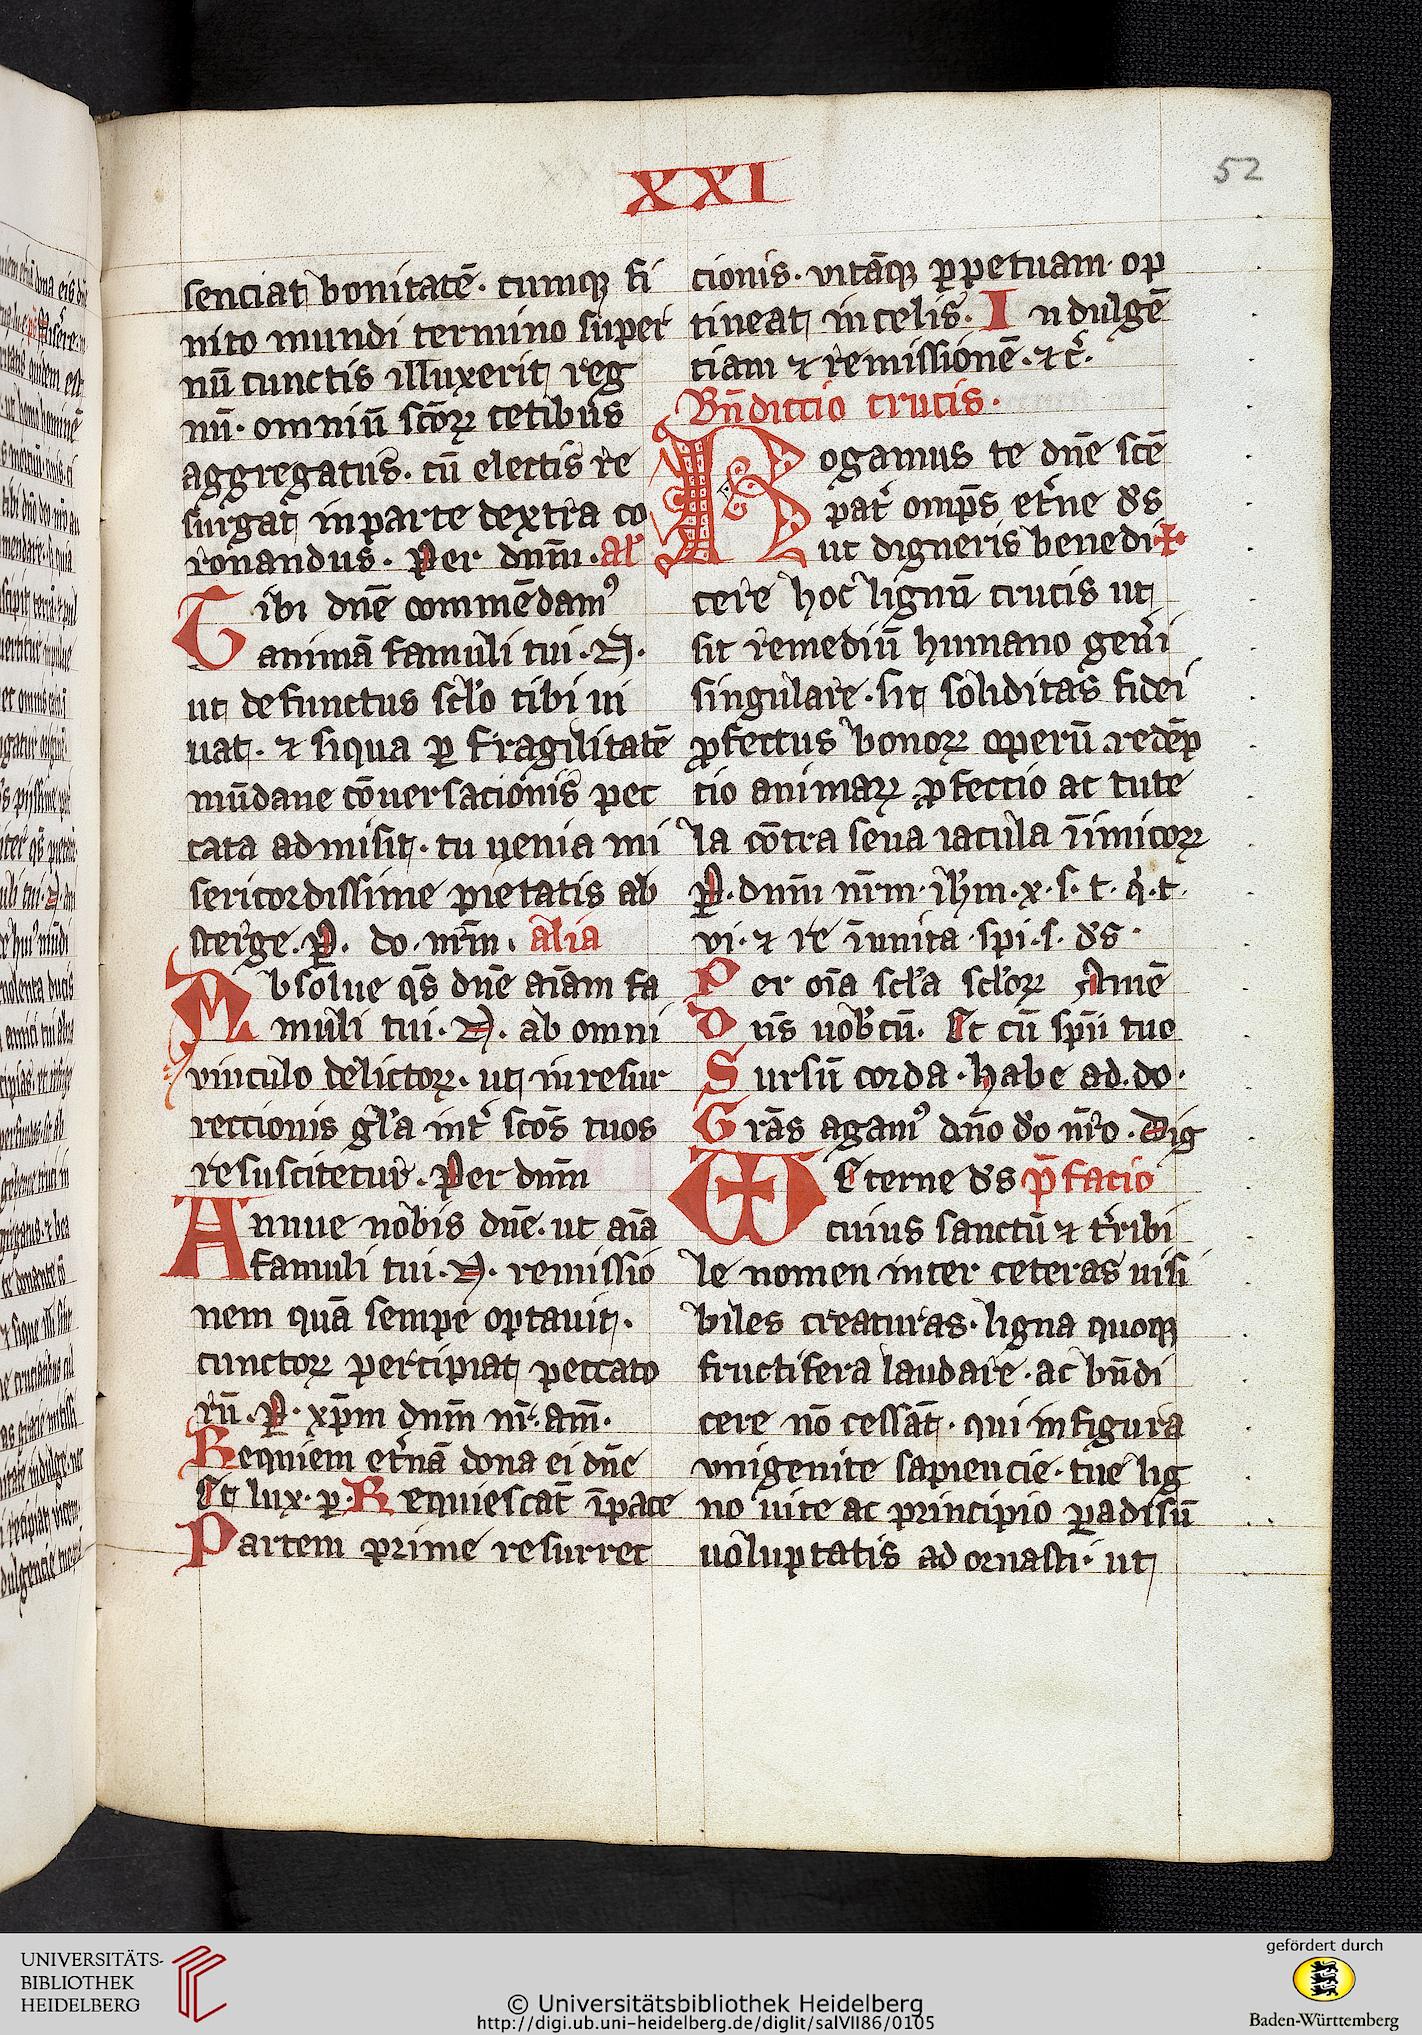 XXI
52
senciat bonitatē. cumqꝫ fi
nito mundi termino super
nū cunctis illuxerit reg
nū. omniū scōꝝ cetibus
aggregatus. cū electis re
surgat in parte dextra co
ronandus. Per dnm̄. al'
Tibi dnē commēdamꝰ
animā famuli tui .N.
ut defunctus sclo tibi ui
uat. ⁊ siqua ꝑ fragilitatē
mūdane cōuersacionis pec
cata admisit. tu uenia mi
sericordissime pietatis ab
sterge. P. do. nrm̄. alia
Absolue qs̄ dnē aīam fa
muli tui .N. ab omni
vinculo delictoꝝ. ut in resur
rectionis gla int' scōs tuos
resuscitetur. Per dnm̄
Annue nobis dnē. ut aīa
famuli tui .N. remissio
nem quā sempe optauit.
cunctoꝝ percipiat peccato
rū. P. xp̄m dnm̄ nr̄. am̄.
Requiem et'nā dona ei dnē
Et lux. ꝑ. Requiescāt īpace
Partem prime resurrec
cionis. vitāqꝫ ꝑpetuam. op
tineat in celis. Indulgē
tiam ⁊ remissionē. ⁊ c̄.
Bn̄diccio crucis.
Rogamus te dnē scē
pat' omps̄ et'ne ds̄
ut digneris benedi✠
cere hoc lignū crucis ut
sit remediū humano gen'i
singulare. sit soliditas fidei
ꝓfectus bonoꝝ operū redēp
tio animaꝝ ꝓfectio ac tute
la cōtra seua iacula īimicoꝝ
P. dnm̄ nrm̄. ihm̄. x. s. t. q'. t.
vi. ⁊ re īunita. spi. s. ds̄.
Per oīa scla scloꝝ Amē
Dn̄s uob'cū. Et cū spū tuo
Sursū corda. habe ad. do.
Grās agamꝰ dn̄o do nr̄o. Dig
Eterne ds̄ p̄facio
cuius sanctū ⁊ t'ribi
le nomen inter ceteras uisi
biles creaturas. ligna quoqꝫ
fructifera laudare. ac bn̄di
cere nō cessāt. qui in figura
vnigenite sapiencie. tue lig
no uite ac principio ꝑadisū
uoluptatis adornasti. ut
UNIVERSITÄTS-
BIBLIOTHEK
HEIDELBERG
© Universitätsbibliothek Heidelberg
http://digi.ub.uni-heidelberg.de/diglit/salVII86/0105
gefördert durch
Baden-Württemberg